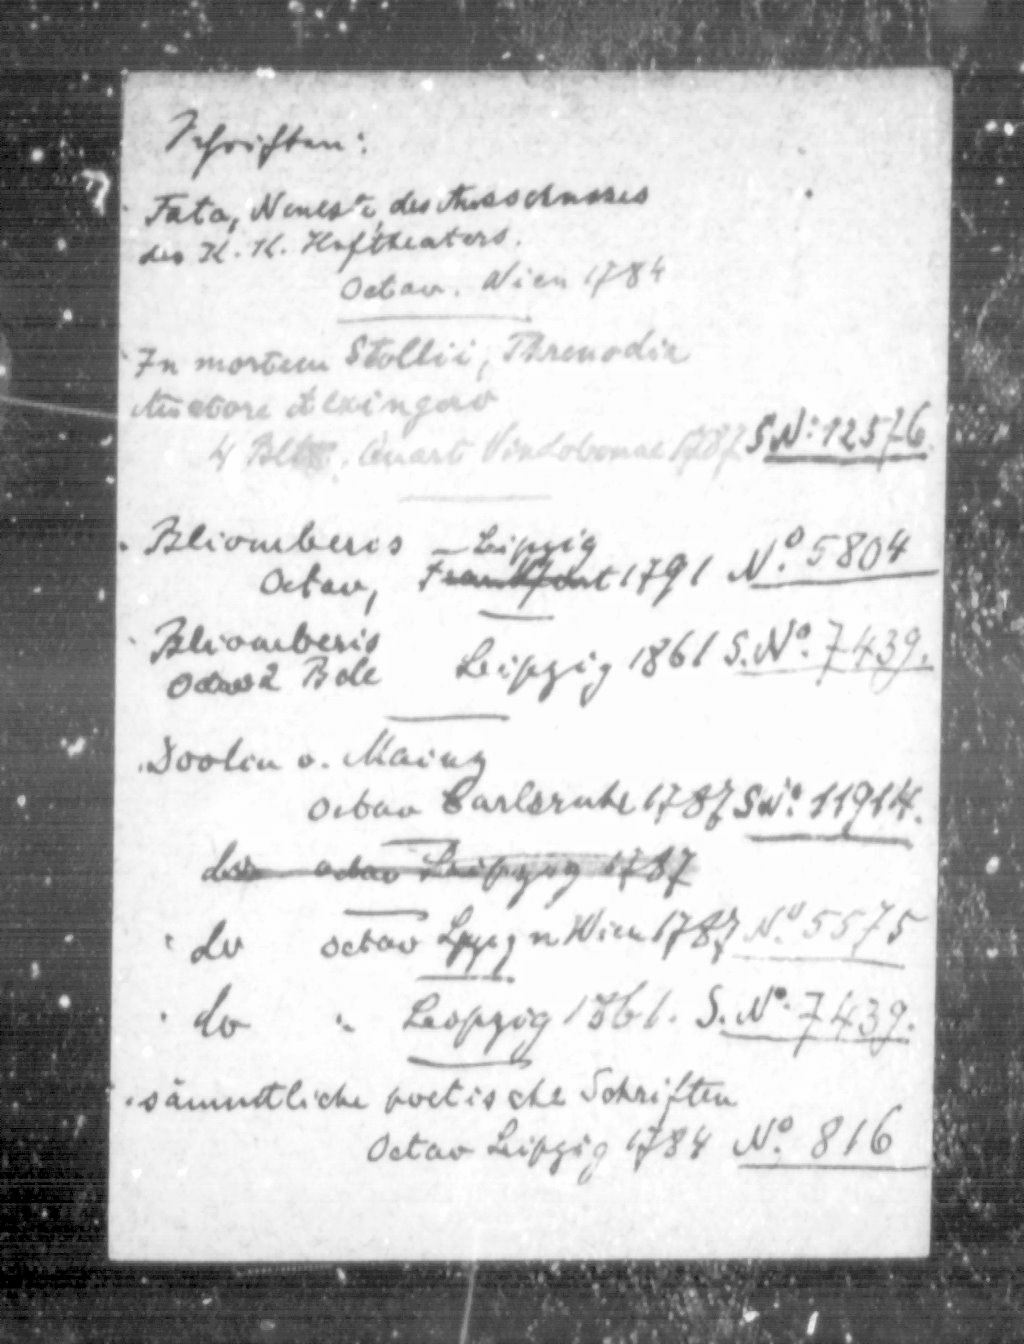 Schriften:
Fata, Neueste, des Ausschusses
des K. K. Hoftheaters.
Octav. Wien 1784
In mortem Stollii, Threnodia
Auctore Alxingero
4 Blt. Quart Vindobonae 1787 S.No: 12576.
Bliomberis Leipzig
Octav, Frankfurt 1791 No. 5804
Bliomberis
Octav 2 Bde Leipzig 1861 S. No. 7439.
Doolin v. Mainz
Octav Carlsruhe 1787 S No. 11914.
do octav Leipzig 1787
do octav Lpzg u Wien 1787 No. 5575
do " Leipzig 1861. S. No. 7439.
sämmtliche poetische Schriften
Octav Leipzig 1784 No. 816